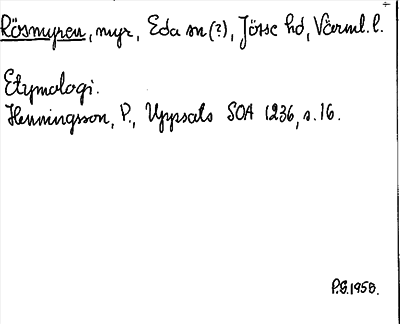 Rösmyren, myr, Eda sn (?), Jösse hd, Värml. l.
Etymologi.
Henningsson, P., Uppsats SOA 1236, s. 16.
P.G. 1958.